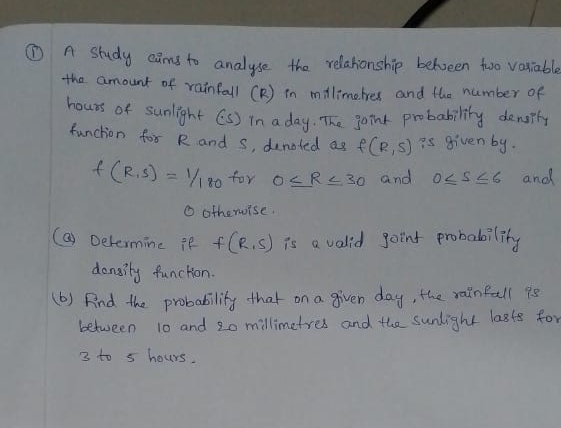 ① A study aims to analyse the relationship between two variable
the amount of rainfall (R) in millimetres and the number of
hours of sunlight (S) in a day. The joint probability density
function for R and S, denoted as f(R,S) is given by.
f(R,S) = 1/180 for 0≤R≤30 and 0≤S≤6 and
0 otherwise.
(a) Determine if f(R,S) is a valid joint probability
density function.
(b) Find the probability that on a given day, the rainfall is
between 10 and 20 millimetres and the sunlight lasts for
3 to 5 hours.